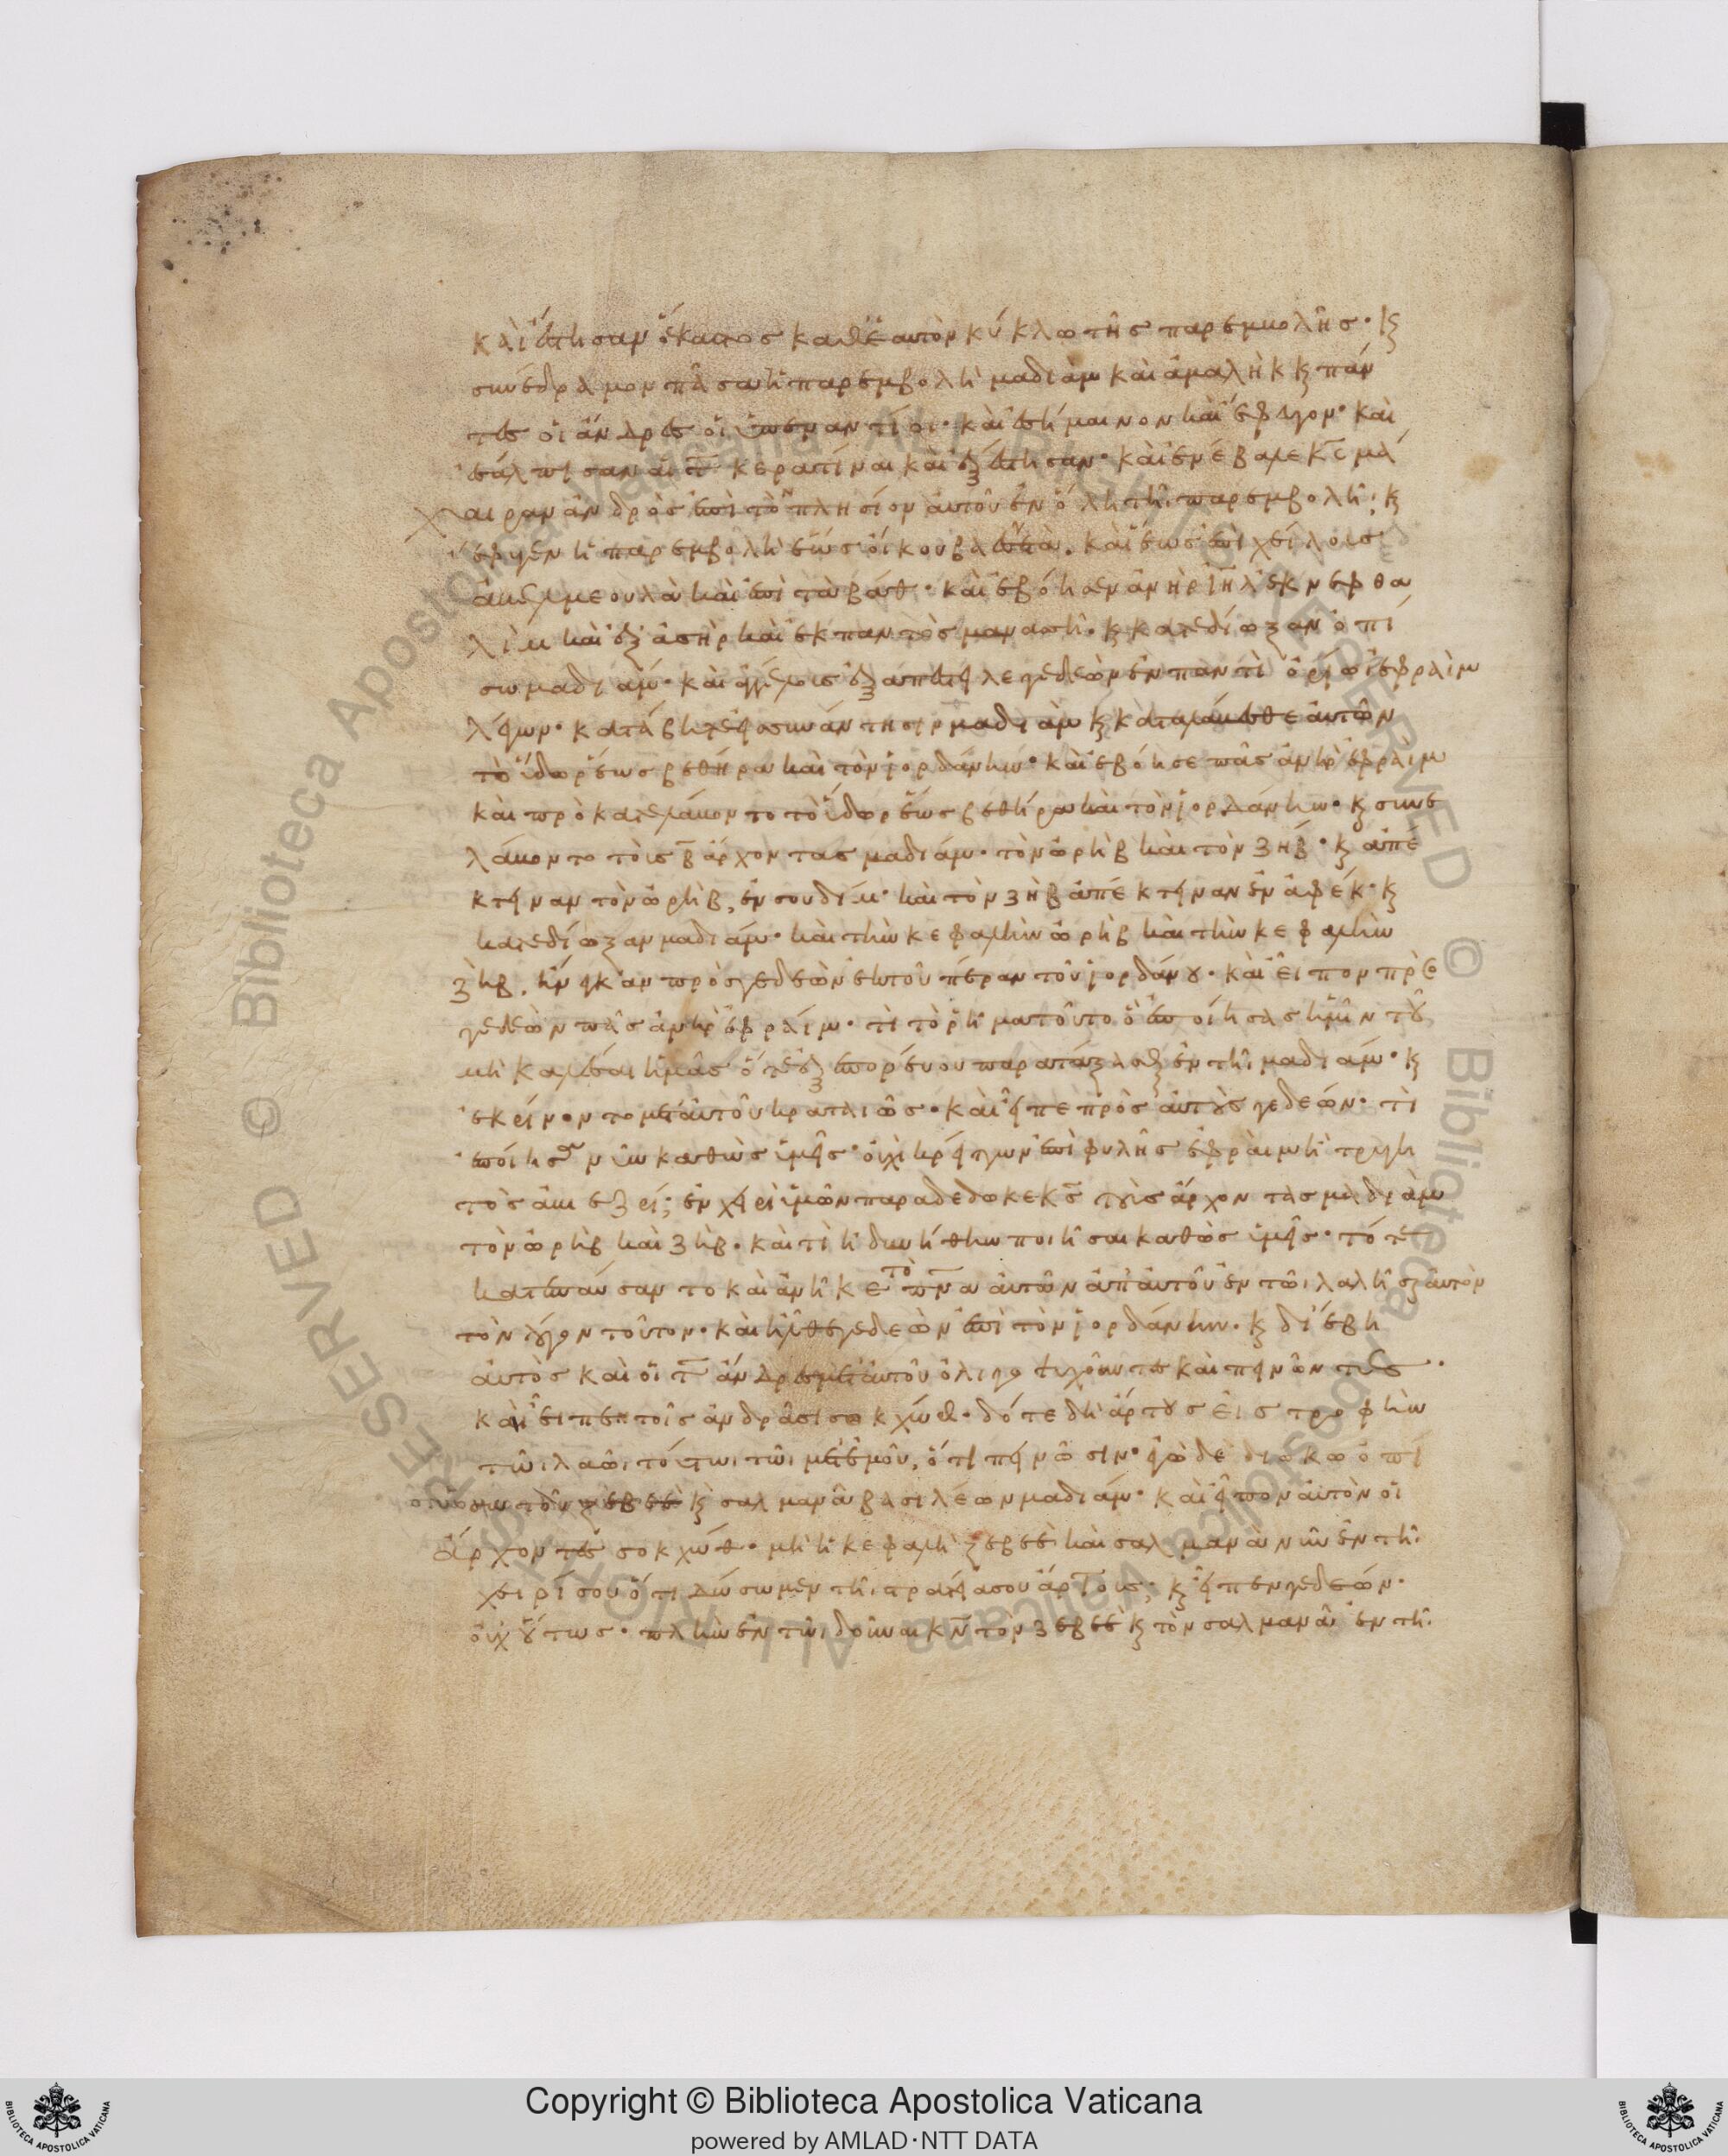 καὶ ἔστησαν ἕκαστος καθ' ἑαυτὸν κύκλω τῆς παρεμβολῆς· κ
συνέδραμον πᾶσα ἡ παρεμβολὴ μαδιὰμ καὶ ἀμαλὴκ κ πάν
τες οἱ ἄνδρες οἱ ὑπεναντίοι· καὶ ἐσήμαινον καὶ ἔφυγον· καὶ
ἐσάλπισαν αἱ τ̅ κερατίναι καὶ ἐξέστησαν· καὶ ἐνέβαλε κ̅ς μά
χαιραν ἀνδρὸς ἐπὶ τὸν πλησίον αὐτοῦ ἐν ὅλη τῆι παρεμβολῆ; κ
ἔφυγεν ἡ παρεμβολὴ ἕως οἴκου καὶ ἕως ἐπὶ χείλους
καὶ ἐπὶ ταβάθ· καὶ ἐβόησεν ἀνὴρ ι̅η̅λ ἐκ νεφθα
λὶμ καὶ ἐξ ἀσὴρ καὶ ἐκ παντὸς μανασσῆ· κ κατεδίωξαν ὀπί
σω μαδιάμ· καὶ ἀγγέλους ἐξαπέστειλε γεδεὼν ἐν παντὶ ὁρίω ἐφραὶμ
λέγων· κατάβητε εἰς συνάντησιν μαδιὰμ κ καταλάβεσθε αὐτῶν
τὸ ὕδωρ ἕως βεθήρα καὶ τὸν ἰορδάνην· καὶ ἐβόησε πᾶς ἀνὴρ ἐφραιμ
καὶ προκατελάβοντο τὸ ὕδωρ ἕως βεθήρα καὶ τὸν ἰορδάνην· κ συνε
λάβοντο τοὺς β̅ ἄρχοντας μαδιάμ· τὸν ὠρὴβ καὶ τὸν ζήβ· κ ἀπέ
κτειναν τὸν ὠρὴβ, ἐν σουδίμ· καὶ τὸν ζὴβ ἀπέκτειναν ἐν ἀφέκ· κ
κατεδίωξαν μαδιάμ· καὶ τὴν κεφαλὴν ὠρὴβ καὶ τὴν κεφαλὴν
ζὴβ, ἤνεικαν πρὸς γεδεὼν ἐκ τοῦ πέραν τοῦ ἰορδάνου· καὶ εἶπον πρὸς
γεδεὼν πᾶς ἀνὴρ ἐφραίμ· τὶ τὸ ῥῆμα τοῦτο ὃ ἐποίησας ἡμῖν τοῦ
μὴ καλέσαι ἡμᾶς ὅτε ἐξεπορεύου παρατάξασθαι ἐν τῆ μαδιάμ· κ
ἐκρίνοντο μετ' αὐτοῦ κραταιῶς· καὶ εἶπε πρὸς αὐτοὺς γεδεών· τὶ
ἐποίησα νῦν καθὼς ὑμεῖς· οὐχὶ κρείσσων ἐπιφυλλὶς ἐφραὶμ ἢ τρυγη
τὸς ἀβιεζρί; ἐν χειρὶ ὑμῶν παραδέδωκε κ̅ς τοὺς ἄρχοντας μαδιὰμ
τὸν ὠρὴβ καὶ ζήβ· καὶ τί ἠδυνήθην ποιῆσαι καθὼς ὑμεῖς· τότε
κατέπαυσαν τὸ καὶ ἀνῆκε τὸ π̅ν̅α αὐτῶν ἀπ' αὐτοῦ ἐν τῶι λαλῆσαι αὐτὸν
τὸν λόγον τοῦτον· καὶ ἦλθε γεδεὼν ἐπὶ τὸν ἰορδάνην· κ διέβη
αὐτὸς καὶ οἱ τ̅ ἄνδρες μετ' αὐτοῦ ὀλιγοψυχοῦντες καὶ πεινῶντες·
καὶ εἶπεν τοῖς ἀνδράσι σοκχώθ· δότε δὴ ἄρτους εἰς τροφὴν
τῶι λαῶι τούτωι τῶι μετ' ἐμοῦ, ὅτι πεινῶσιν· ἐγὼ δὲ διώκω ὀπί
σω τὸν ζεβεὲ κ σαλμανᾶ βασιλέων μαδιάμ· καὶ εἶπον αὐτὸν οἱ
ἄρχοντες σοκχώθ· μὴ ἡ κεφαλὴ ζεβεὲ καὶ σαλμανὰ νῦν ἐν τῆ
χειρί σου ὅτι δώσωμεν τῆι στρατιᾶ σου ἄρτους; κ εἶπεν γεδεών·
οὐχ οὕτως· πλὴν ἐν τῶι δοῦναι κ̅ν̅ τὸν ζεβεὲ κ τὸν σαλμανᾶ ἐν τῆ
Copyright © Biblioteca Apostolica Vaticana
powered by AMLAD·NTT DATA